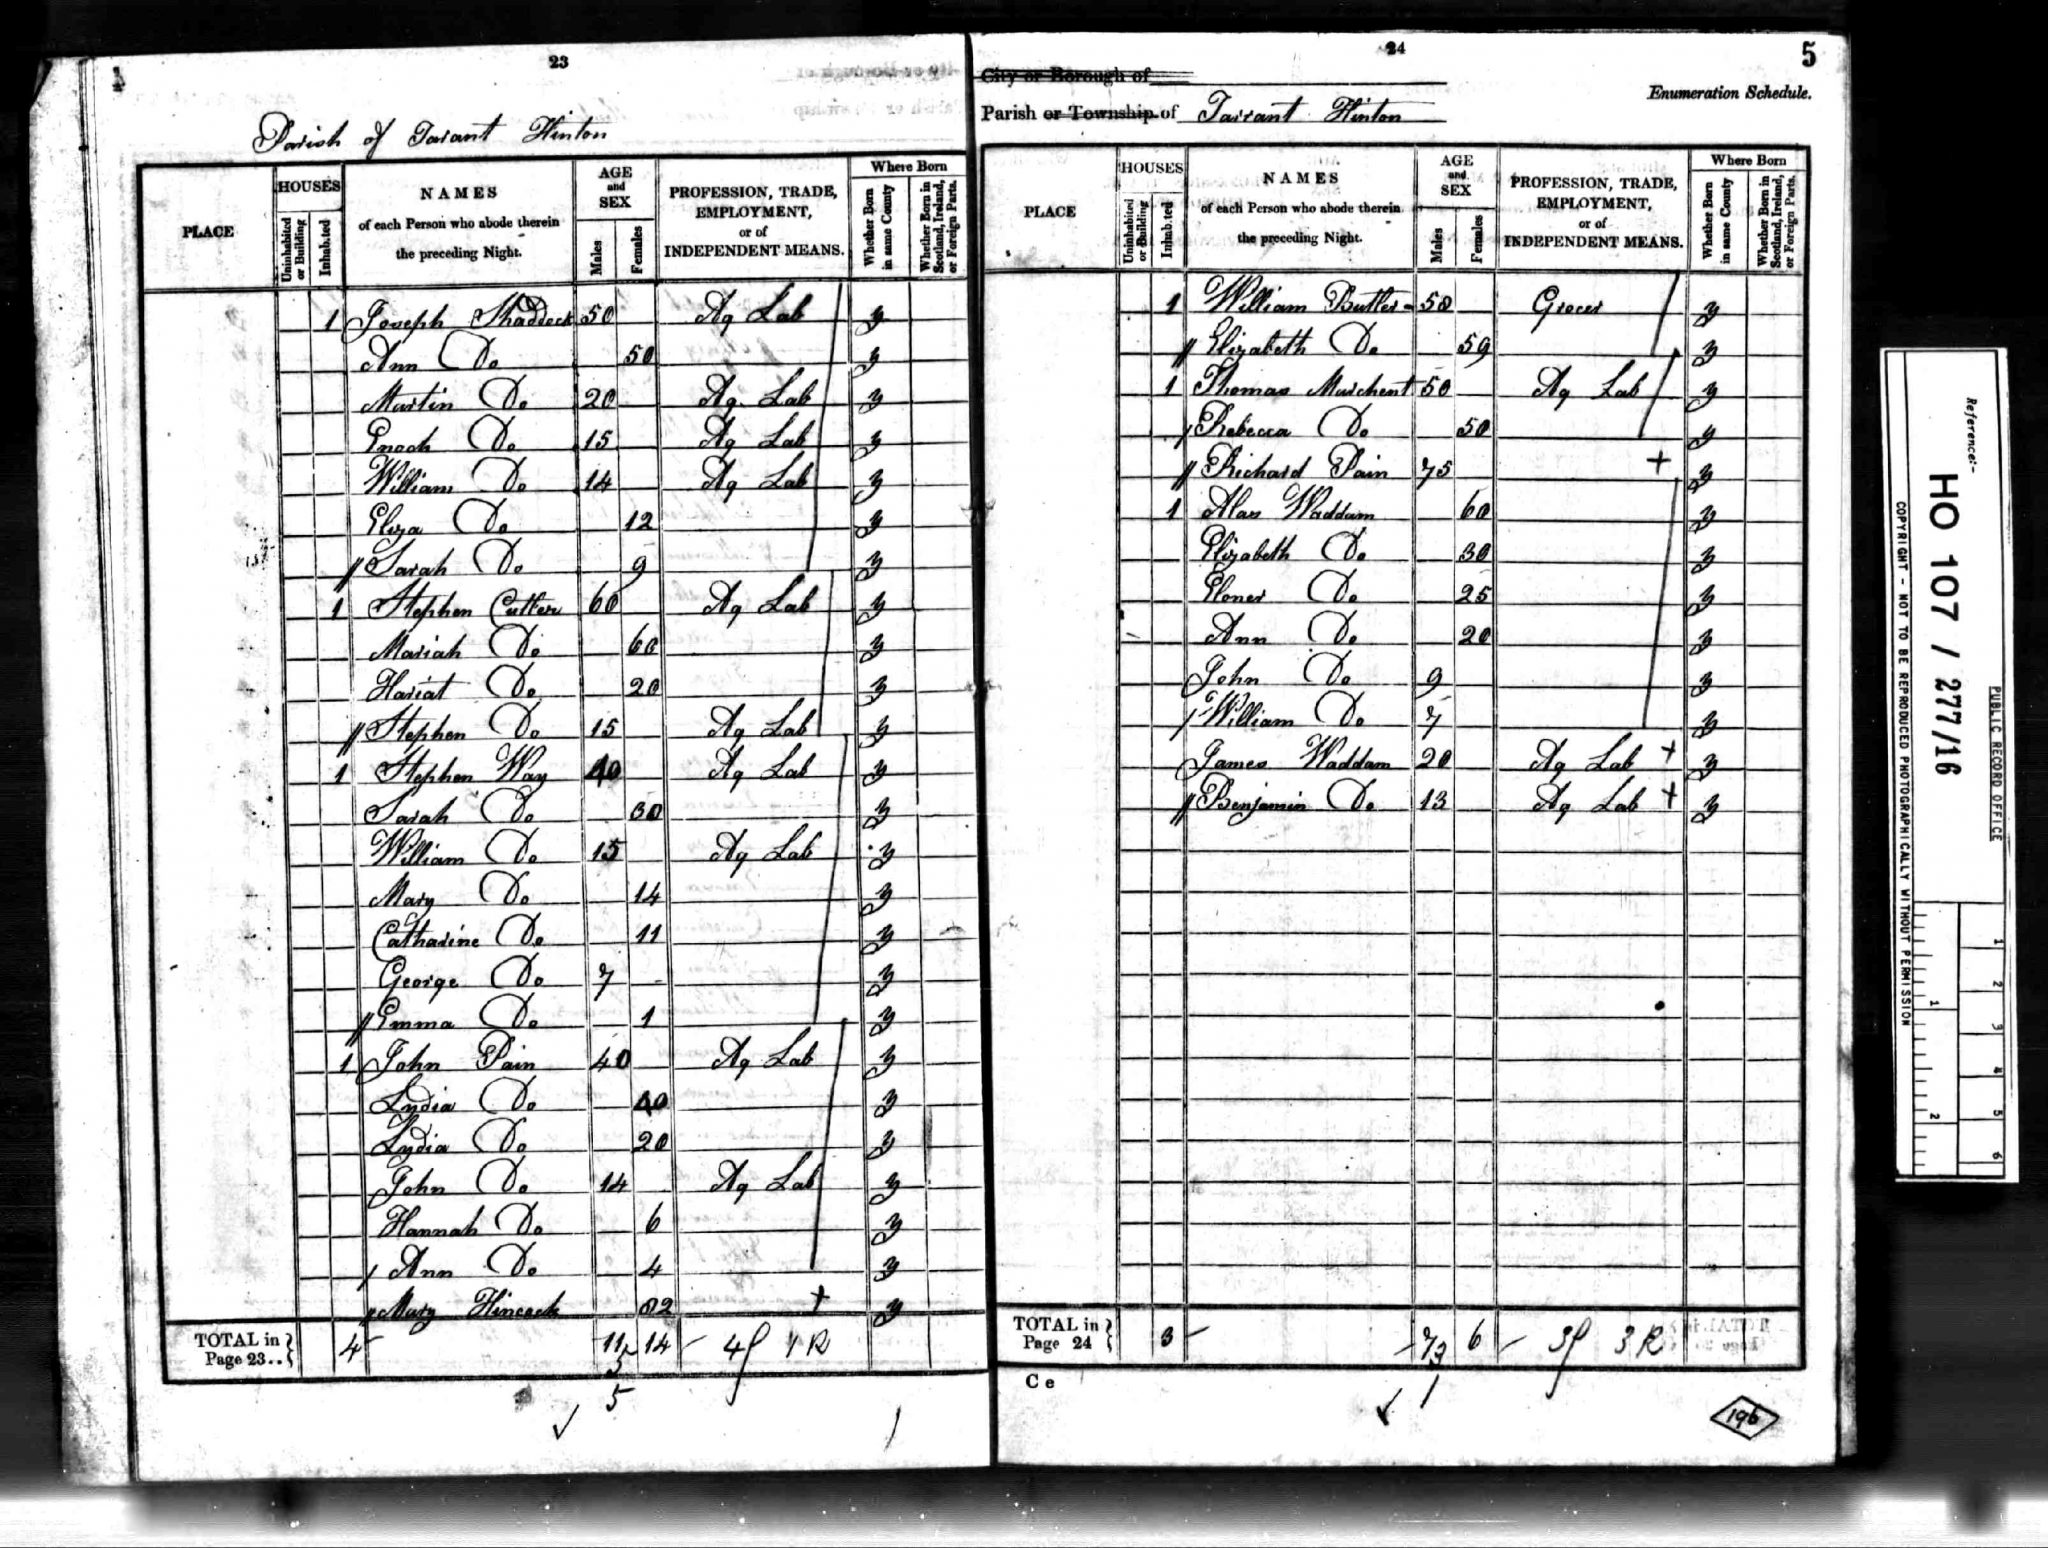 23
Parish of Tarrant Hinton
PLACE HOUSES NAMES AGE and SEX PROFESSION, TRADE, EMPLOYMENT, or of INDEPENDENT MEANS. Where Born
Uninhabited or Building Inhabited of each Person who abode therein the preceding Night. Males Females Whether Born in same County Whether Born in Scotland, Ireland, or Foreign Parts.
1 Joseph Shaddock 50 Ag Lab y
Ann Do 50 y
Martin Do 20 Ag Lab y
Enoch Do 15 Ag Lab y
William Do 14 Ag Lab y
Eliza Do 12 y
// Sarah Do 9 y
1 Stephen Cutler 60 Ag Lab y
Mariah Do 60 y
Hariat Do 20 y
// Stephen Do 15 Ag Lab y
1 Stephen Way 40 Ag Lab y
Sarah Do 30 y
William Do 15 Ag Lab y
Mary Do 14 y
Catharine Do 11 y
George Do 7 y
// Emma Do 1 y
1 John Pain 40 Ag Lab y
Lydia Do 40 y
Lydia Do 20 y
John Do 14 Ag Lab y
Hannah Do 6 y
/ Ann Do 4 y
// Mary Hincock y
TOTAL in Page 23.. 4 11 14 4 1 R
5
24
5
City or Borough of
Enumeration Schedule.
Parish or Township of Tarrant Hinton
PLACE HOUSES NAMES AGE and SEX PROFESSION, TRADE, EMPLOYMENT, or of INDEPENDENT MEANS. Where Born
Uninhabited or Building Inhabited of each Person who abode therein the preceding Night. Males Females Whether Born in same County Whether Born in Scotland, Ireland, or Foreign Parts.
1 William Butler 58 Grocer y
// Elizabeth Do 59 y
1 Thomas Marchent 50 Ag Lab y
/ Rebecca Do 50 y
// Richard Pain 75 y
1 Waddam 60 y
Elizabeth Do 30 y
Eloner Do 25 y
Ann Do 20 y
John Do 9 y
/ William Do 7 y
James Waddam 20 Ag Lab y
// Benjamin Do 13 Ag Lab y
TOTAL in Page 24 3 7 6 3 3 R
C e
1
196
Reference:-
HO 107 / 277/16
PUBLIC RECORD OFFICE
COPYRIGHT - NOT TO BE REPRODUCED PHOTOGRAPHICALLY WITHOUT PERMISSION
1 2 3 4 5 6
1 2